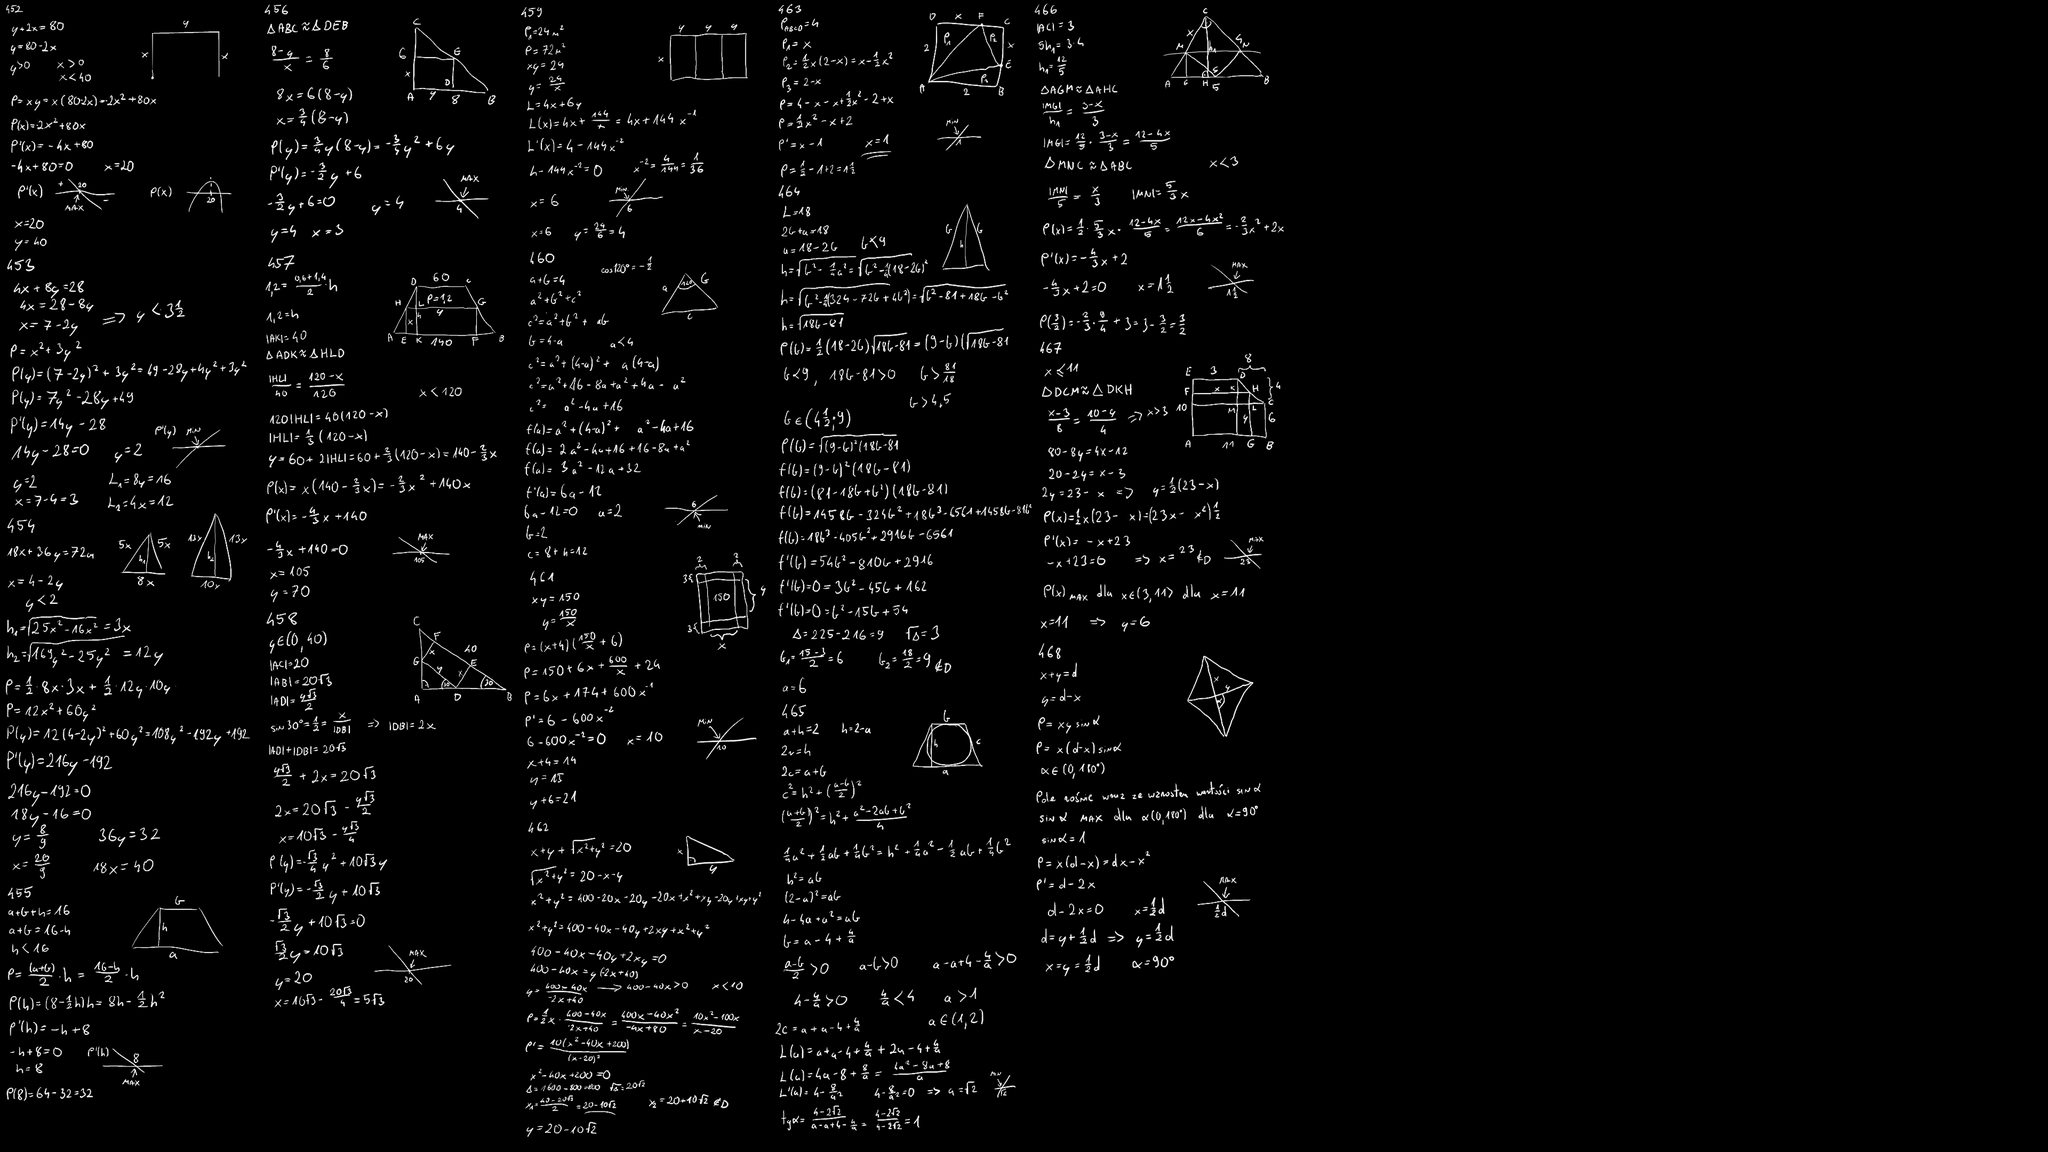 452
y+2x=80
y=80-2x
y>0 x>0
x<40
P=xy=x(80-2x)=-2x²+80x
P(x)=-2x²+80x
P'(x)=-4x+80
-4x+80=0 x=20
P'(x) + 20 - MAX P(x) 20
x=20
y=40
453
4x+8y=28
4x=28-8y
x=7-2y => y<3½
P=x²+3y²
P(y)=(7-2y)²+3y²=49-28y+4y²+3y²
P(y)=7y²-28y+49
P'(y)=14y-28
14y-28=0 y=2 P'(y) MIN
y=2 L₁=8y=16
x=7-4=3 L₂=4x=12
454
18x+36y=72
x=4-2y
y<2
5x 5x h₁ 8x
13x 13x h₂ 10x
h₁=√(25x²-16x²)=3x
h₂=√(169y²-25y²)=12y
P=½·8x·3x+½·12y·10y
P=12x²+60y²
P(y)=12(4-2y)²+60y²=108y²-192y+192
P'(y)=216y-192
216y-192=0
18y-16=0
y=8/9 36y=32
x=20/9 18x=40
455
a+b+h=16
a+b=16-h
h<16
b h a
P=(a+b)/2·h=(16-h)/2·h
P(h)=(8-½h)h=8h-½h²
P'(h)=-h+8
-h+8=0 P'(h) 8 MAX
h=8
P(8)=64-32=32
456
△ABC≈△DEB
(8-y)/x=8/6
8x=6(8-y)
x=¾(8-y)
C 6 E x D A y 8 B
P(y)=¾y(8-y)=-¾y²+6y
P'(y)=-3/2y+6
-3/2y+6=0 y=4 MAX 4
y=4 x=3
457
1,2=(0,6+1,4)/2·h
1,2=h
|AK|=40
△ADK≈△HLD
D 60 C H L P=12 G y x h A E K 140 F B
|HL|/40=(120-x)/120 x<120
120|HL|=40(120-x)
|HL|=⅓(120-x)
y=60+2|HL|=60+⅔(120-x)=140-⅔x
P(x)=x(140-⅔x)=-⅔x²+140x
P'(x)=-4/3x+140
-4/3x+140=0 MAX 105
x=105
y=70
458
y∈(0,40)
|AC|=20
|AB|=20√3
|AD|=y√3/2
C F 40 G x E y x A D 30 B
sin30°=½=x/|DB| => |DB|=2x
|AD|+|DB|=20√3
y√3/2+2x=20√3
2x=20√3-y√3/2
x=10√3-y√3/4
P(y)=-√3/4y²+10√3y
P'(y)=-√3/2y+10√3
-√3/2y+10√3=0
√3/2y=10√3
y=20 MAX 20
x=10√3-20√3/4=5√3
459
P₁=24m²
P=72m²
xy=24
y=24/x
y y y x
L=4x+6y
L(x)=4x+144/x=4x+144x⁻¹
L'(x)=4-144x⁻²
4-144x⁻²=0 x⁻²=4/144=1/36
x=6 MIN 6
x=6 y=24/6=4
460
a+b=4 cos120°=-½
a²+b²+c²
c²=a²+b²+ab
b=4-a a<4
a 120 b c
c²=a²+(4-a)²+a(4-a)
c²=a²+16-8a+a²+4a-a²
c²=a²-4a+16
f(a)=a²+(4-a)²+a²-4a+16
f(a)=2a²-4a+16+16-8a+a²
f(a)=3a²-12a+32
f'(a)=6a-12
6a-12=0 a=2 6 MIN
b=2
c=8+4=12
461
xy=150
y=150/x
2 2 3 150 y 3 x
P=(x+4)(150/x+6)
P=150+6x+600/x+24
P=6x+174+600x⁻¹
P'=6-600x⁻²
6-600x⁻²=0 x=10 MIN 10
x+4=14
y=15
y+6=21
462
x+y+√(x²+y²)=20
x y
√(x²+y²)=20-x-y
x²+y²=400-20x-20y-20x+x²+xy-20y+xy+y²
x²+y²=400-40x-40y+2xy+x²+y²
400-40x-40y+2xy=0
400-40x=y(-2x+40)
y=(400-40x)/(-2x+40) → 400-40x>0 x<10
P=½x·(400-40x)/(-2x+40)=(400x-40x²)/(-4x+80)=(10x²-100x)/(x-20)
P'=10(x²-40x+200)/(x-20)²
x²-40x+200=0
Δ=1600-800=800 √Δ=20√2
x₁=(40-20√2)/2=20-10√2 x₂=20+10√2 ∉D
y=20-10√2
463
P_ABCD=4
P₁=x
P₂=½x(2-x)=x-½x²
P₃=2-x
P=4-x-x+½x²-2+x
P=½x²-x+2
D x F C P₁ P₂ x 2 E P₃ A 2 B
P'=x-1 x=1 MIN 1
P=½-1+2=1½
464
L=18
2b+a=18
a=18-2b b<9
b b h
h=√(b²-¼a²)=√(b²-¼(18-2b)²)
h=√(b²-¼(324-72b+4b²))=√(b²-81+18b-b²)
h=√(18b-81)
P(b)=½(18-2b)√(18b-81)=(9-b)(√(18b-81)
b<9, 18b-81>0 b>81/18
b>4,5
b∈(4½;9)
P(b)=√((9-b)²(18b-81)
f(b)=(9-b)²(18b-81)
f(b)=(81-18b+b²)(18b-81)
f(b)=1458b-324b²+18b³-6561+1458b-81b²
f(b)=18b³-405b²+2916b-6561
f'(b)=54b²-810b+2916
f'(b)=0=3b²-45b+162
f'(b)=0=b²-15b+54
Δ=225-216=9 √Δ=3
b₁=(15-3)/2=6 b₂=18/2=9 ∉D
a=6
465
a+h=2 h=2-a
2r=h
2c=a+b
b h c a
c²=h²+((a-b)/2)²
((a+b)/2)²=h²+(a²-2ab+b²)/4
¼a²+½ab+¼b²=h²+¼a²-½ab+¼b²
h²=ab
(2-a)²=ab
4-4a+a²=ab
b=a-4+4/a
(a-b)/2>0 a-b>0 a-a+4-4/a>0
4-4/a>0 4/a<4 a>1
a∈(1,2)
2c=a+a-4+4/a
L(a)=a+a-4+4/a+2a-4+4/a
L(a)=4a-8+8/a=(4a²-8a+8)/a
L'(a)=4-8/a² 4-8/a²=0 => a=√2 MIN √2
tgα=(4-2√2)/(a-a+4-4/a)=(4-2√2)/(4-2√2)=1
466
|AC|=3
5h₁=3·4
h₁=12/5
C x M h₁ 4 N A G H 5 B
△AGM≈△AHC
|MG|/h₁=(3-x)/3
|MG|=12/5·(3-x)/3=(12-4x)/5
△MNC≈△ABC x<3
|MN|/5=x/3 |MN|=5/3x
P(x)=½·5/3x·(12-4x)/5=(12x-4x²)/6=-⅔x²+2x
P'(x)=-4/3x+2
-4/3x+2=0 x=1½ MAX 1½
P(3/2)=-⅔·9/4+3=3-3/2=3/2
467
x⩽11
△DCM≈△DKH
(x-3)/8=(10-y)/4 => x>3
8 E 3 D F x K H 4 C 10 M L y 6 A 11 G B
80-8y=4x-12
20-2y=x-3
2y=23-x => y=½(23-x)
P(x)=½x(23-x)=(23x-x²)½
P'(x)=-x+23
-x+23=0 => x=23∉D MAX 23
P(x) MAX dla x∈(3,11> dla x=11
x=11 => y=6
468
x+y=d
y=d-x
x y α
P=xy sinα
P=x(d-x)sinα
α∈(0,180°)
Pole rośnie wraz ze wzrostem wartości sinα
sinα MAX dla α(0,180°) dla α=90°
sinα=1
P=x(d-x)=dx-x²
P'=d-2x
d-2x=0 x=½d MAX ½d
d=y+½d => y=½d
x=y=½d α=90°